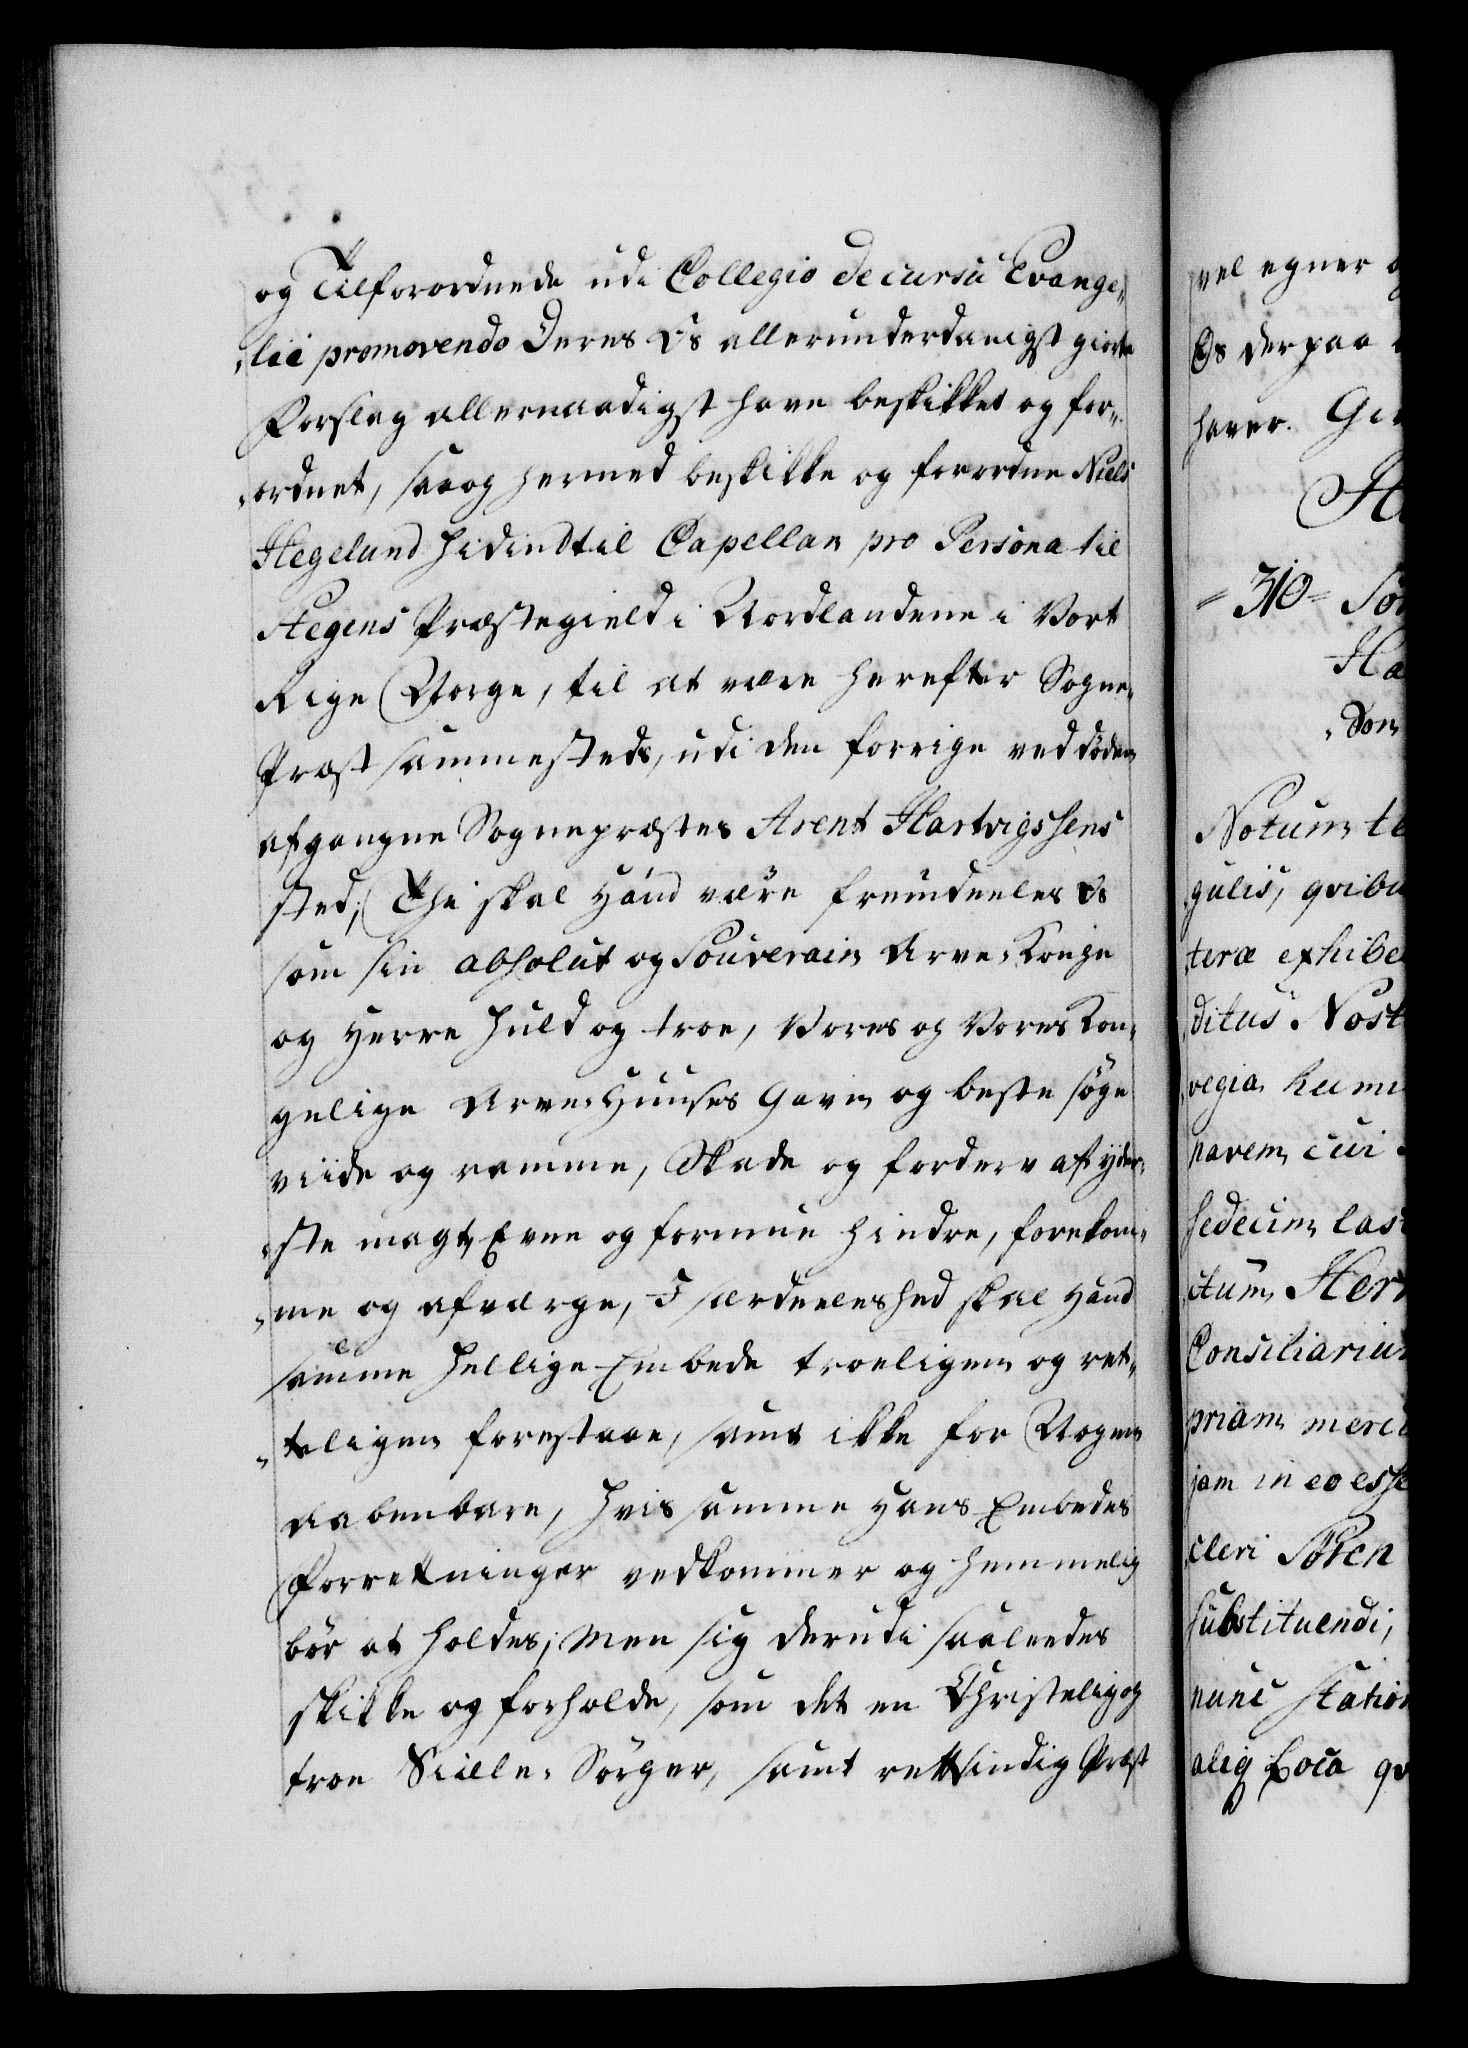 og Tilforordnede udi Collegio de cursu Evange„
„lii promovendo Deres Os allerunderdanigst giorte
Forslag allernaadigst have beskikket og for„
„ordnet, saaog hermed beskikke og forordne Niels
Hegelund hidindtil Capellan pro Persona til
Stegens Præstegield i Nordlandene i Vort
Rige Norge, til at være herefter Sogne„
Præst sammesteds, udi den forrige ved døden
afgangne Sognepræstes Arent Hartvigssens
sted; Thi skal Hand være fremdeeles Os
som sin absolut og Souverain Arve-Konge
og Herre huld og troe, Vores og Vores Kon„
gelige Arve-Huuses Gavn og beste søge
viide og ramme, Skade og forderv af yder„
„ste magt, Evne og formue hindre, forekom„
„me og afværge, I særdeeleshed skal Hand
samme hellige Embede troeligen og ret„
„teligen forestaae, samt ikke for Nogen
aabenbare, hvis samme Hans Embedes
Forretninger vedkommer og hemmelig
bør at holdes; Men sig derudi saaleedes
skikke og forholde, som det en Christelig og
troe Siæle-Sørger, samt retsindig Præst
vel egner
Os derpaa
haver.
= 310 =
Notum
gulis, qvibu
teræ exhibe
ditus Nost
vegia humi
navem cui
sedecim last
ctum Her
Consiliariu
priam merci
jam in eo esse
cleri Sören
substituendi,
nunc Station
aliq Loca qv